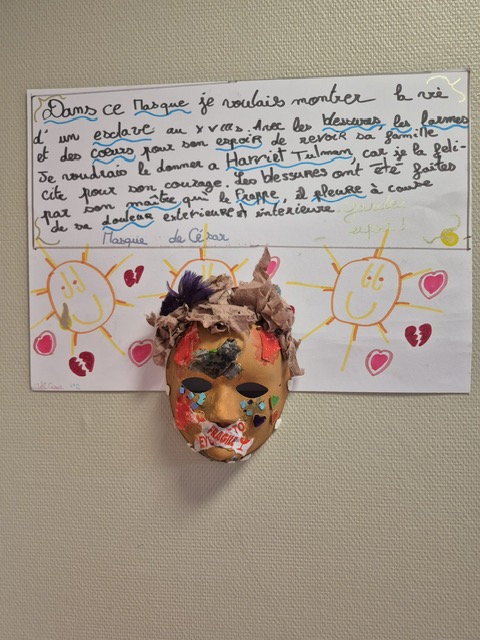 Dans ce Masque je voulais montrer la vie
d'un esclave au XVIIIs. Avec les blessures, les larmes
et des cœurs pour son espoir de revoir sa famille
Je voudrais le donner a Harriet Tulman, car je la féli-
cite pour son courage. Les blessures ont été faites
par son maître qui le frappe, il pleure à cause
de sa douleur extérieure et interieure.
Masque de César
FRAGILE